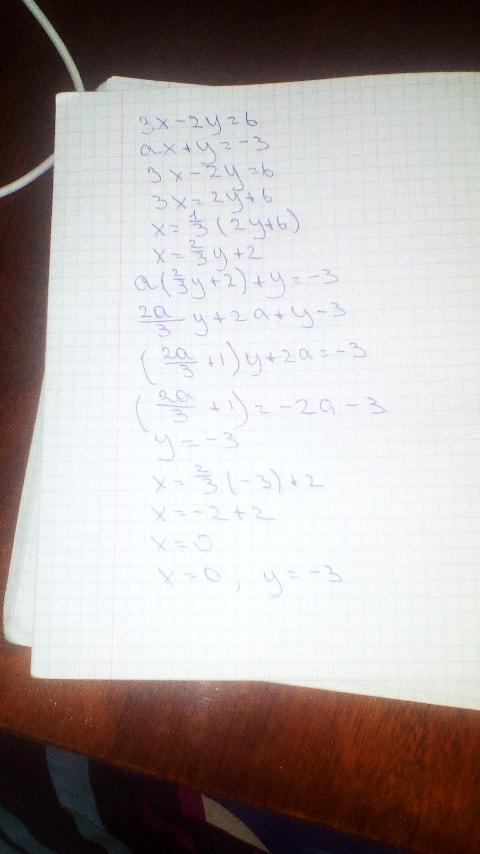 3x-2y=6
ax+y=-3
3x-2y=6
3x=2y+6
x=1/3(2y+6)
x=2/3y+2
a(2/3y+2)+y=-3
2a/3 y+2a+y-3
(2a/3+1)y+2a=-3
(2a/3+1)=-2a-3
y=-3
x=2/3(-3)+2
x=-2+2
x=0
x=0; y=-3